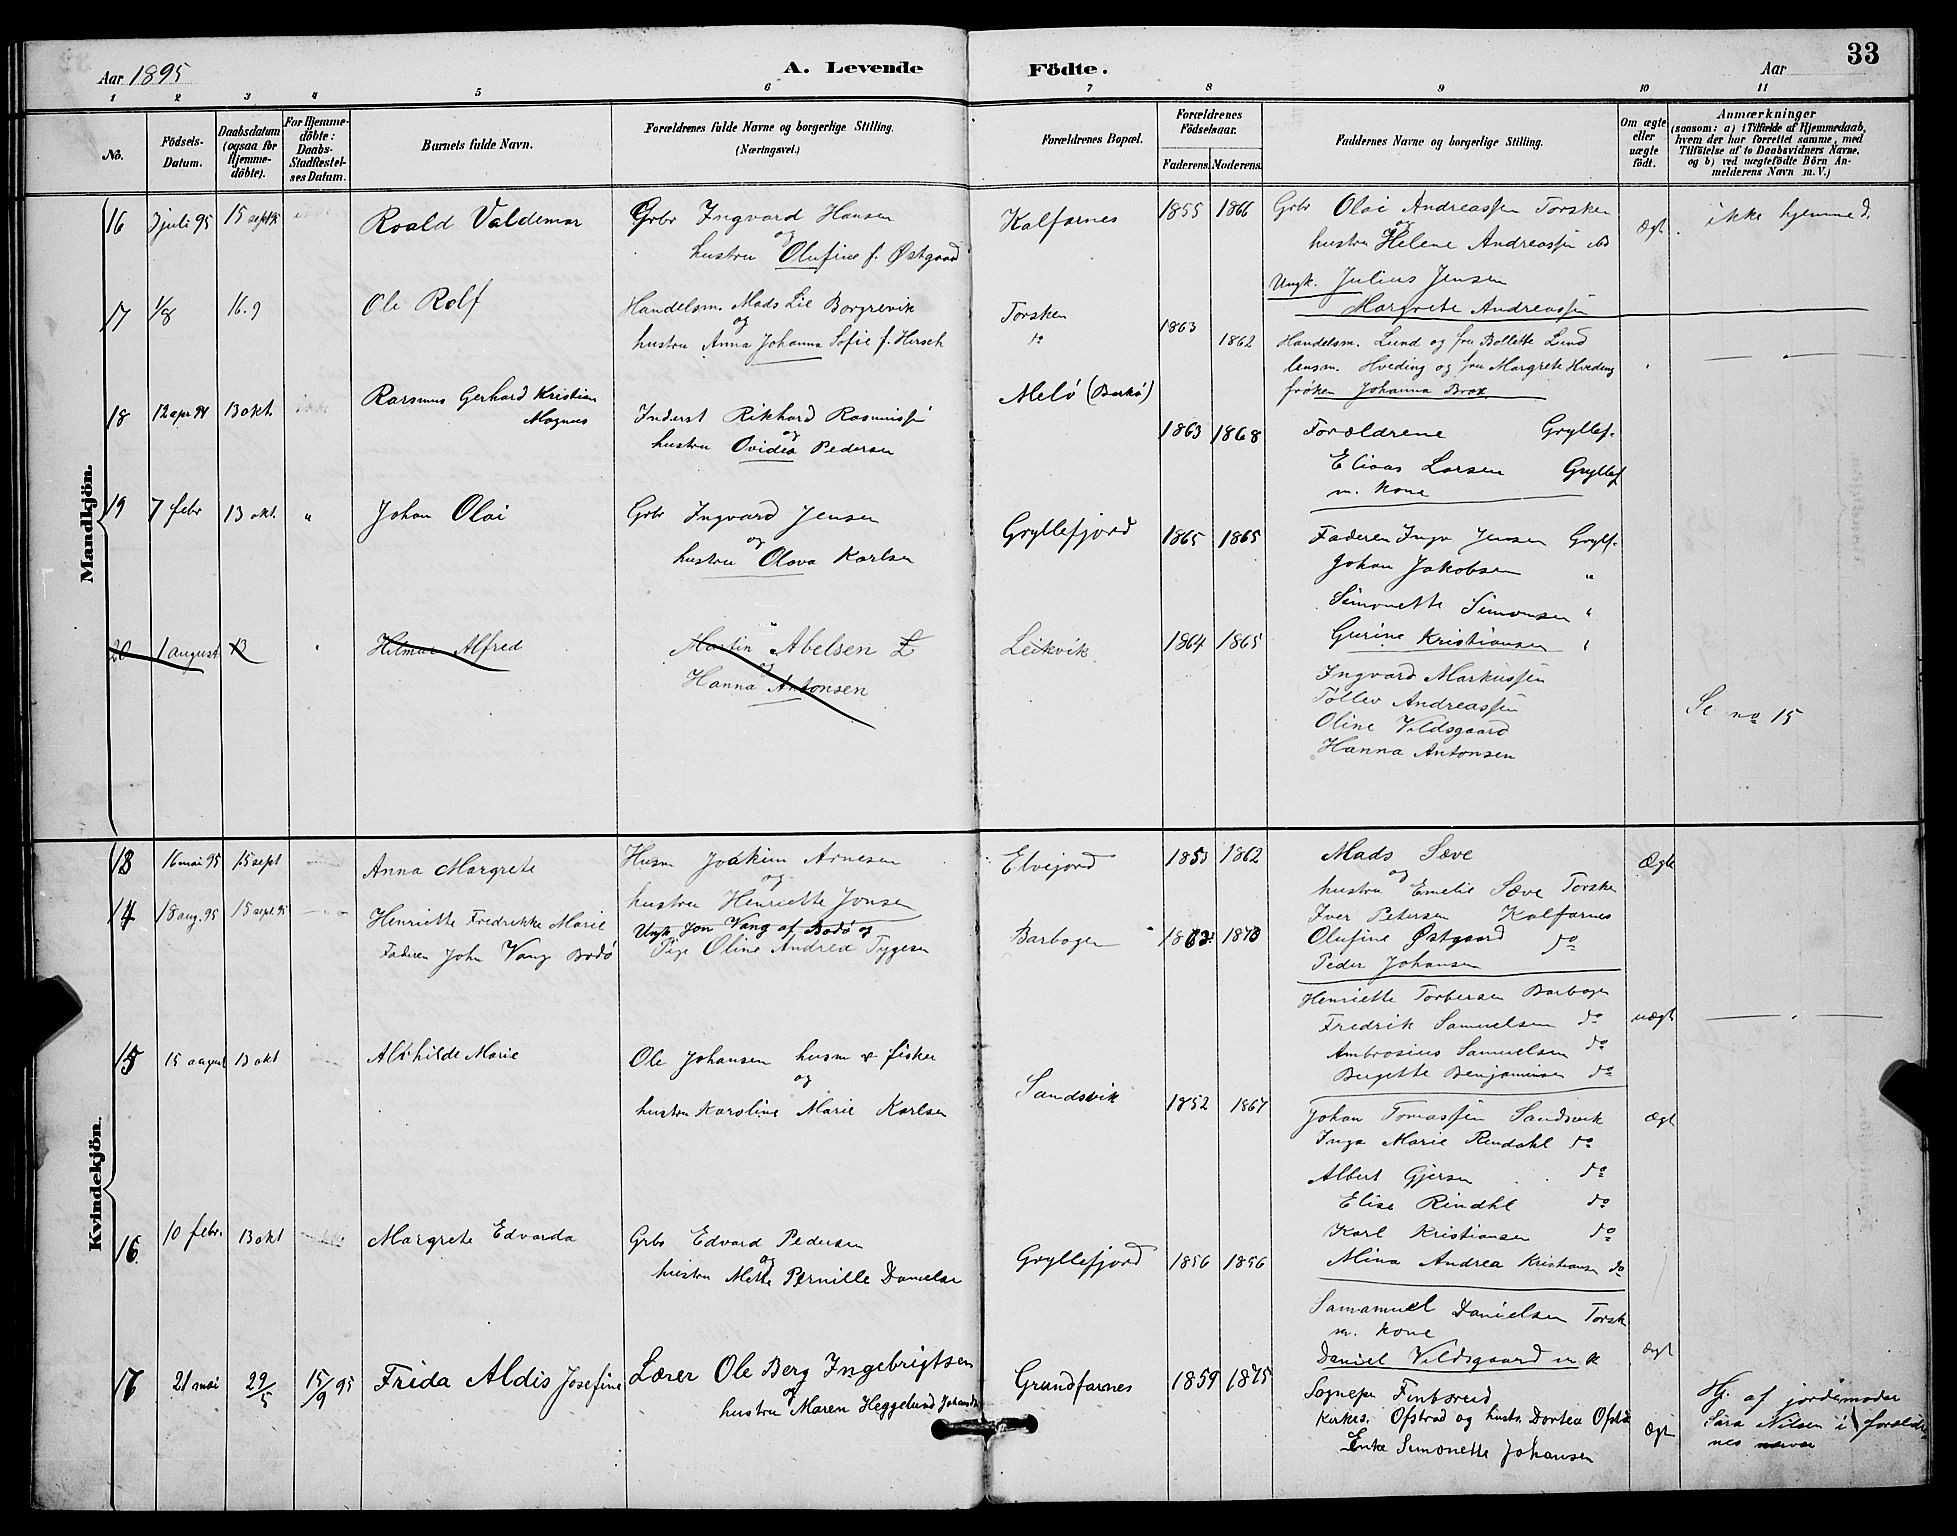 33
Aar 1895
A. Levende Födte.
Aar
1 2 3 4 5 6 7 8 9 10 11
No.
Födsels-Datum.
Daabsdatum (ogsaa for Hjemme-döbte).
For Hjemme-döbte: Daabs-Stadfæstel-ses Datum.
Barnets fulde Navn.
Forældrenes fulde Navne og borgerlige Stilling.
(Næringsvei.)
Forældrenes Bopæl.
Forældrenes Födselsaar.
Faderens. Moderens.
Faddernes Navne og borgerlige Stilling.
Om ægte eller uægte födt.
Anmærkninger
(saasom: a) i Tilfælde af Hjemmedaab,
hvem der har forrettet samme, med
Tilföielse af to Daabsvidners Navne,
og b) ved uegtefödte Börn An-
melderens Navn m. V.)
Mandkjön.
16 3 juli 95 15 sept Roald Valdemar
Grbr Ingvard Hansen
og
hustru Olufine f. Østgaard
Kalfarnes 1855 1866
Grbr Olai Andreassen Torsken
og
hustru Helene Andreassen
Ungk. Julius Jensen
Margrete Andreassen
Ægt. ikke hjemmed.
17 1/8 16.9 Ole Rolf
Handelsm. Mads Lie Borgrevik
og
hustru Anna Johanna Sofie f. Hirsch
Torsken
do
1863 1862
Handelsm. Lund og fru Bollette Lund
lensm. Hveding og fru Margrete Hveding
frøken Johanna Brox
18 12 apr 94 13 okt. ikke Rasmus Gerhard Kristian
Magnus
Inderst Rikhard Rasmussen
og
hustru Ovidea Pedersen
Melö (Barkö) 1863 1868
Forældrene Gryllef.
Elias Larsen Gryllef
m. kone
19 7 febr 13 okt. " Johan Olai
Grbr Ingvard Jensen
og
hustru Olava Karlsen
Gryllefjord 1865 1865
Faderen Ingv Jensen Gryllf.
Johan Jakobsen "
Simonette Simonsen "
Gurine Kristiansen "
20 1 august 13 " Hilmar Alfred
Martin Abelsen
og
Hanna Antonsen
Leikvik 1864 1865
Ingvard Markussen
Tollev Andreassen
Oline Vildsgaard
Hanna Antonsen
Se no 15
Kvindekjön.
13 16 mai 95 15 sept Anna Margrete
Husm Joakim Arnesen
og
hustru Henriette Jonsen
Elvejord 1853 1862
Mads Sæve
og
hustru Emelie Sæve Torsken
Iver Petersen Kalfarnes
Olufine Østgaard do
Peder Johansen
Ægte
14 18 aug. 95 15 sept. 95 Henriette Fredrikke Marie
Faderen John Vang Bodö
Ungk Jon Vang af Bodö og
Pige Oline Andrea Tygesen
Barbogen 1863 1873
Henriette Torbersen Barbogen
Fredrik Samuelsen do
Ambrosius Samuelsen do
Bergette Benjaminsen do
uægt
15 15 august 13 okt Alvhilde Marie
Ole Johansen husm & fisker
og
hustru Karoline Marie Karlsen
Sandsvik 1852 1867
Johan Tomassen Sandsvik
Inga Marie Rendahl do
Albert Gjersen do
Elise Rindhl do
Karl Kristiansen do
Mina Andrea Kristiansen do
ægt
16 10 febr. 13 okt Margrete Edvarda
Grbr Edvard Pedersen
og
hustru Mette Pernille Danielse
Gryllefjord 1856 1856
Samamuel Danielsen Torsk
m. kone
Daniel Vildsgaard m k
ægt
17 21 mai 29/5 15/9 95 Frida Aldis Josefine
Lærer Ole Berg Ingebrigtsen
og
hustru Maren Heggelund Johans
Grundfarnes 1859 1875
Sognepr Fintsreid
Kirkes. Ofstad og hustr. Dortea Ofstd
Enke Simonette Johansen
Ægt
Hj. af jordemoder
Sara Nilsen i forældre
nes nærvær